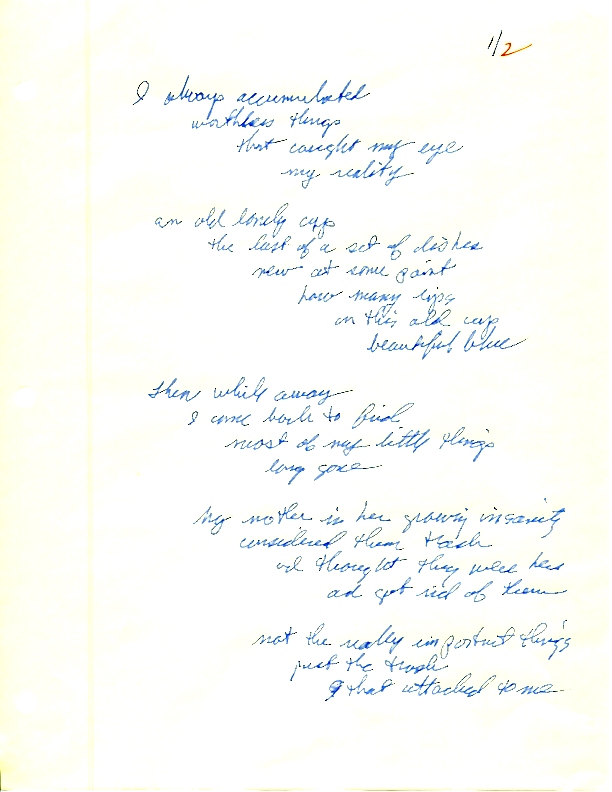 1/2
I always accumulated
worthless things
that caught my eye
my reality
an old lonely cup
the last of a set of dishes
new at some point
how many lips
on this old cup
beautiful blue
then while away
I come back to find
most of my little things
long gone
my mother in her growing insanity
considered them trash
or thought they were hers
and got rid of them
not the really important things
just the trash
that attached to me